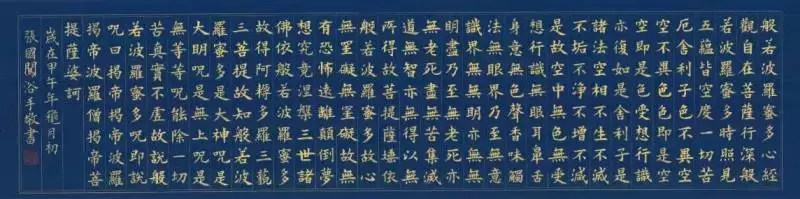 般若波羅蜜多心經
觀自在菩薩行深般
若波羅蜜多時照見
五蘊皆空度一切苦
厄舍利子色不異空
空不異色色即是空
空即是色受想行識
亦復如是舍利子是
諸法空相不生不滅
不垢不淨不增不減
是故空中無色無受
想行識無眼耳鼻舌
身意無色聲香味觸
法無眼界乃至無意
識界無無明亦無無
明盡乃至無老死亦
無老死盡無苦集滅
道無智亦無得以無
所得故菩提薩埵依
般若波羅蜜多故心
無罣礙無罣礙故無
有恐怖遠離顛倒夢
想究竟涅槃三世諸
佛依般若波羅蜜多
故得阿耨多羅三藐
三菩提故知般若波
羅蜜多是大神咒是
大明咒是無上咒是
無等等咒能除一切
苦真實不虛故說般
若波羅蜜多咒即說
咒曰揭帝揭帝波羅
揭帝波羅僧揭帝菩
提薩婆訶
歲在甲午年穐月初
張國浴手敬書